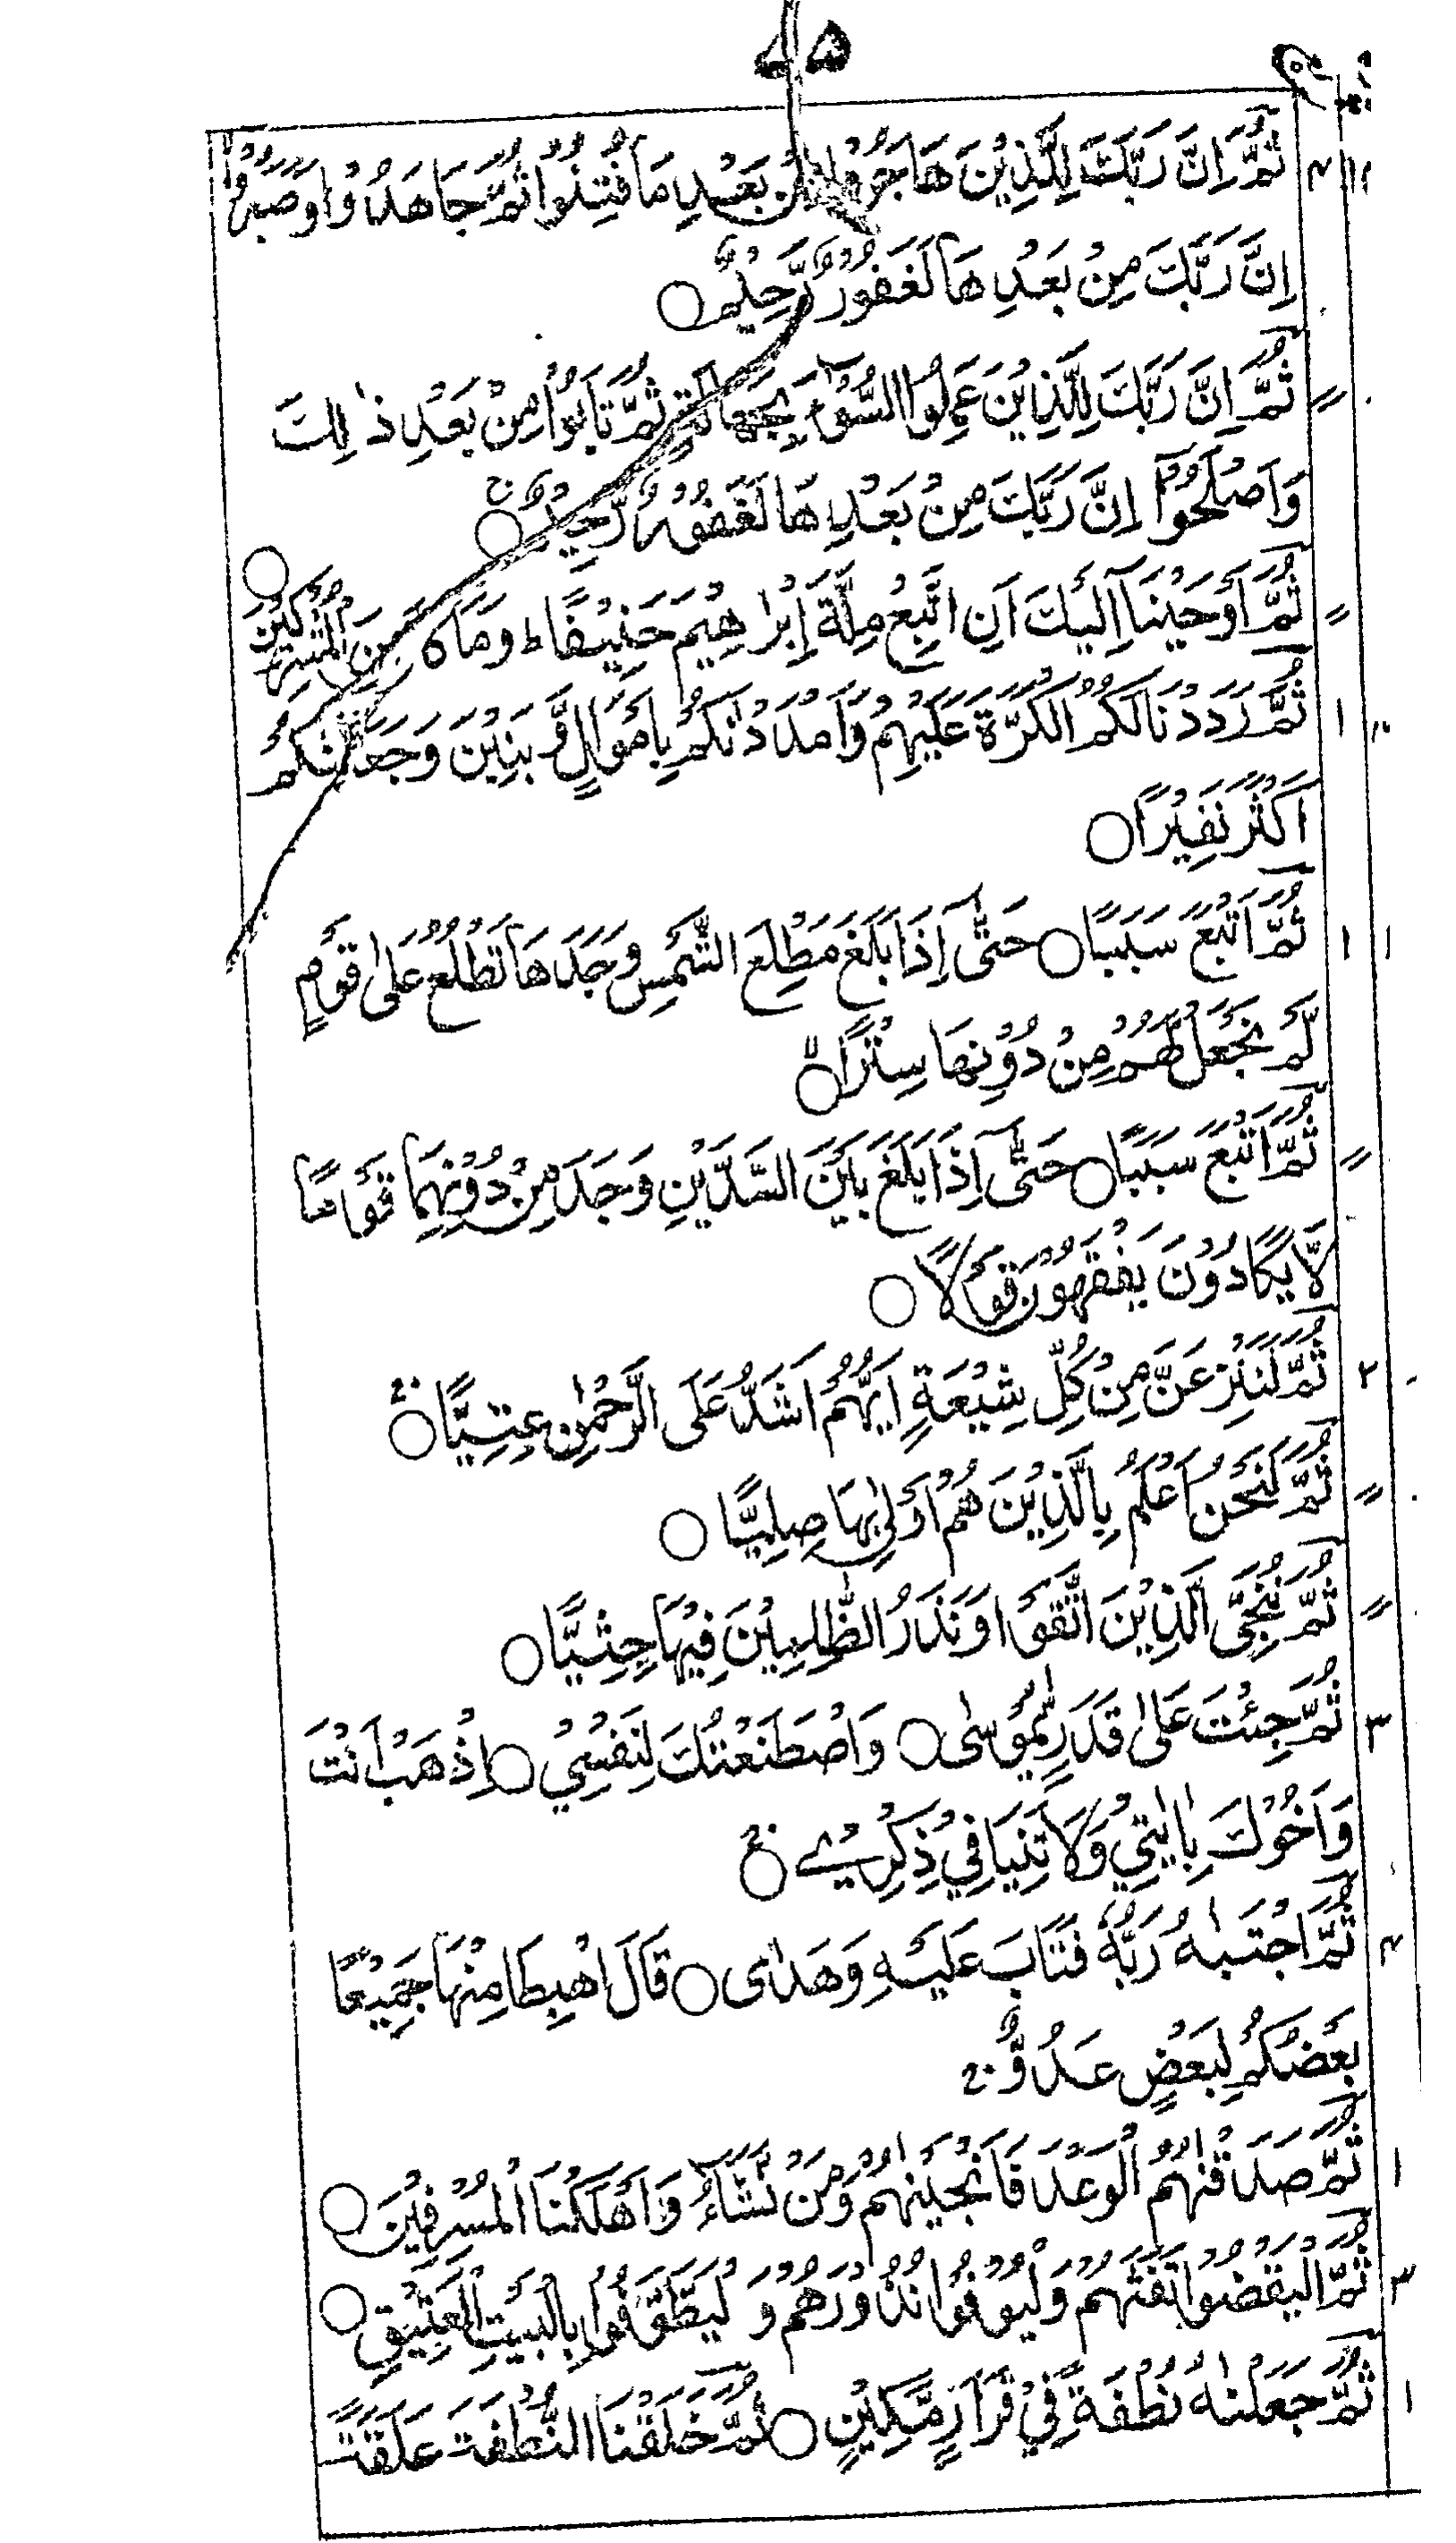 ثُمَّ اِنَّ رَبَّكَ لِلَّذِيْنَ هَاجَرُوْا مِنْۢ بَعْدِ مَا فُتِنُوْا ثُمَّ جَاهَدُوْا وَصَبَرُوْٓا
اِنَّ رَبَّكَ مِنْۢ بَعْدِهَا لَغَفُوْرٌ رَّحِيْمٌ ○
ثُمَّ اِنَّ رَبَّكَ لِلَّذِيْنَ عَمِلُوا السُّوْٓءَ بِجَهَالَةٍ ثُمَّ تَابُوْا مِنْۢ بَعْدِ ذٰلِكَ
وَاَصْلَحُوْٓا اِنَّ رَبَّكَ مِنْۢ بَعْدِهَا لَغَفُوْرٌ رَّحِيْمٌ ○
ثُمَّ اَوْحَيْنَآ اِلَيْكَ اَنِ اتَّبِعْ مِلَّةَ اِبْرٰهِيْمَ حَنِيْفًا ط وَمَا كَانَ مِنَ الْمُشْرِكِيْنَ ○
ثُمَّ رَدَدْنَا لَكُمُ الْكَرَّةَ عَلَيْهِمْ وَاَمْدَدْنٰكُمْ بِاَمْوَالٍ وَّبَنِيْنَ وَجَعَلْنٰكُمْ
اَكْثَرَ نَفِيْرًا ○
ثُمَّ اَتْبَعَ سَبَبًا ○ حَتّٰٓى اِذَا بَلَغَ مَطْلِعَ الشَّمْسِ وَجَدَهَا تَطْلُعُ عَلٰى قَوْمٍ
لَّمْ نَجْعَلْ لَّهُمْ مِنْ دُوْنِهَا سِتْرًا ○
ثُمَّ اَتْبَعَ سَبَبًا ○ حَتّٰٓى اِذَا بَلَغَ بَيْنَ السَّدَّيْنِ وَجَدَ مِنْ دُوْنِهِمَا قَوْمًا
لَّا يَكَادُوْنَ يَفْقَهُوْنَ قَوْلًا ○
ثُمَّ لَنَنْزِعَنَّ مِنْ كُلِّ شِيْعَةٍ اَيُّهُمْ اَشَدُّ عَلَى الرَّحْمٰنِ عِتِيًّا ○
ثُمَّ لَنَحْنُ اَعْلَمُ بِالَّذِيْنَ هُمْ اَوْلٰى بِهَا صِلِيًّا ○
ثُمَّ نُنَجِّى الَّذِيْنَ اتَّقَوْا وَنَذَرُ الظّٰلِمِيْنَ فِيْهَا جِثِيًّا ○
ثُمَّ جِئْتَ عَلٰى قَدَرٍ يّٰمُوْسٰى ○ وَاصْطَنَعْتُكَ لِنَفْسِيْ ○ اِذْهَبْ اَنْتَ
وَاَخُوْكَ بِاٰيٰتِيْ وَلَا تَنِيَا فِيْ ذِكْرِيْ ○
ثُمَّ اجْتَبٰهُ رَبُّهٗ فَتَابَ عَلَيْهِ وَهَدٰى ○ قَالَ اهْبِطَا مِنْهَا جَمِيْعًا
بَعْضُكُمْ لِبَعْضٍ عَدُوٌّ ج
ثُمَّ صَدَقْنٰهُمُ الْوَعْدَ فَاَنْجَيْنٰهُمْ وَمَنْ نَّشَآءُ وَاَهْلَكْنَا الْمُسْرِفِيْنَ ○
ثُمَّ الْيَقْضُوْا تَفَثَهُمْ وَلْيُوْفُوْا نُذُوْرَهُمْ وَ لْيَطَّوَّفُوْا بِالْبَيْتِ الْعَتِيْقِ ○
ثُمَّ جَعَلْنٰهُ نُطْفَةً فِيْ قَرَارٍ مَّكِيْنٍ ○ ثُمَّ خَلَقْنَا النُّطْفَةَ عَلَقَةً